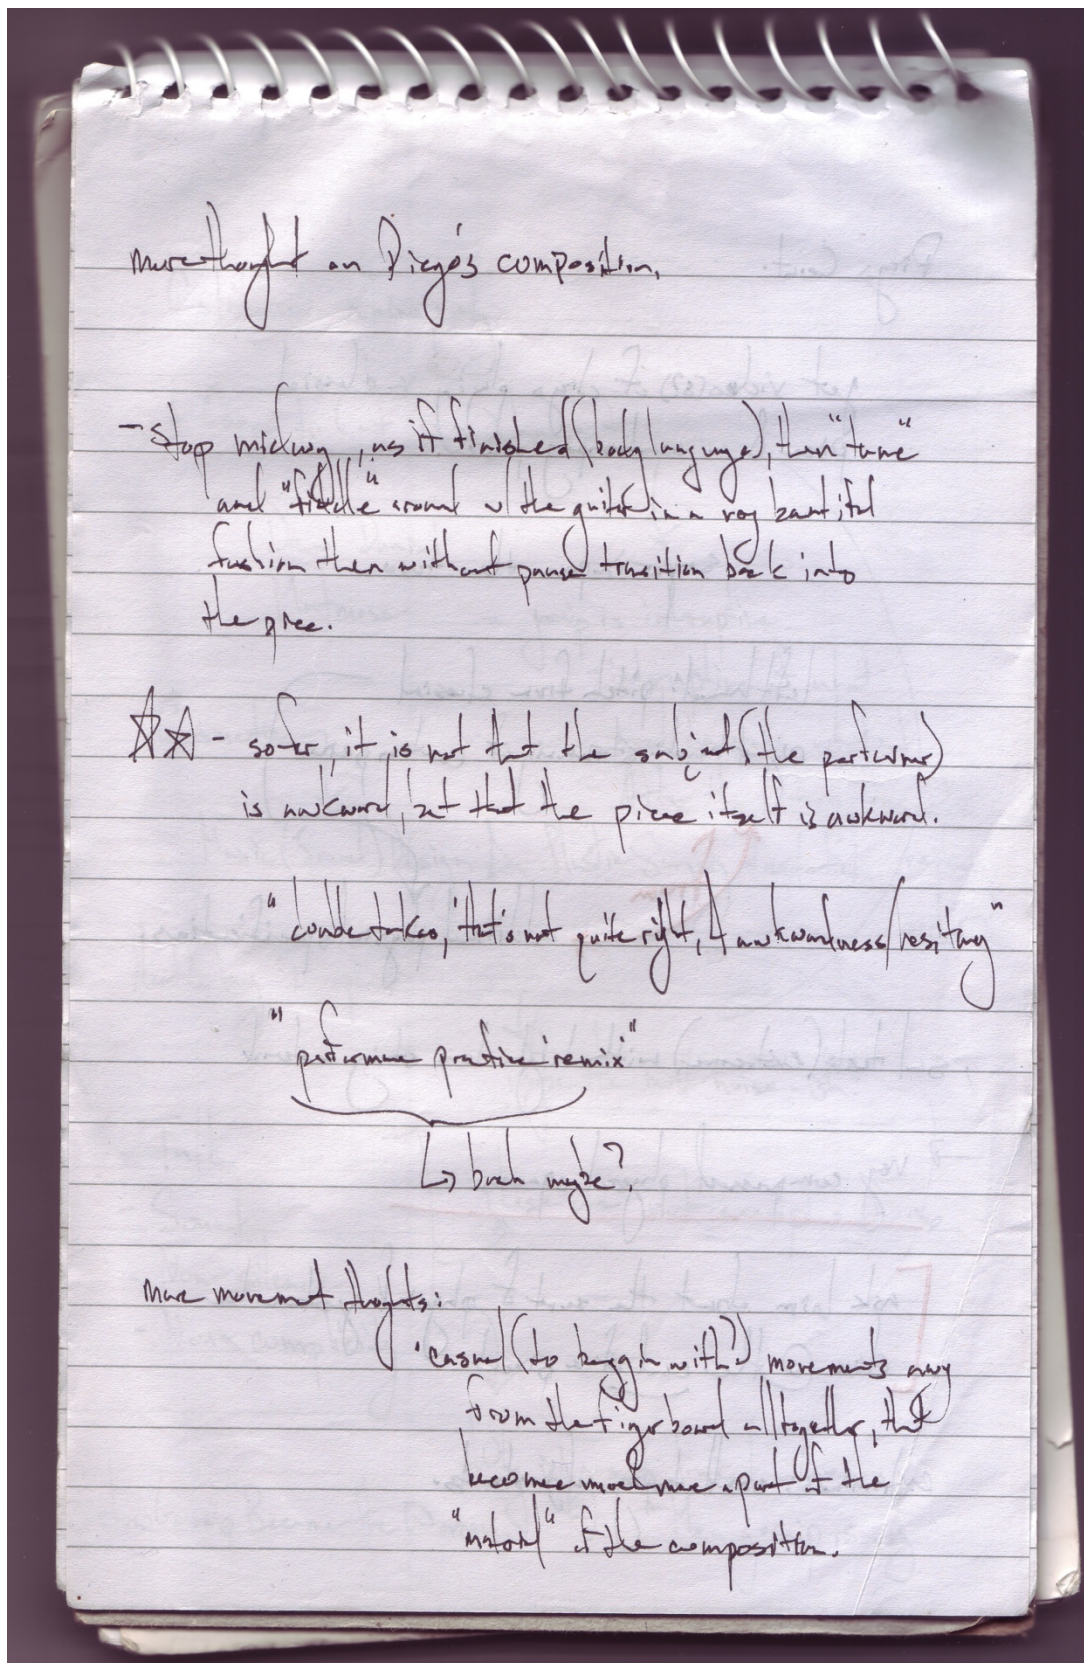 more thought on Diego's composition.
- stop midway, as if finished (body language), then "tune"
and "fiddle" around w/ the guitar in a very beautiful
fashion then without pause transition back into
the piece.
☆☆ - so far, it is not that the subject (the performer)
is awkward, but that the piece itself is awkward.
" takes, 'that's not quite right, & awkwardness/hesitancy"
"performance practice 'remix'"
↳ bach maybe?
more movement thoughts:
'casual (to beggin with?) movements away
from the fingerboard alltogether, that
become more & more a part of the
"material" of the composition.